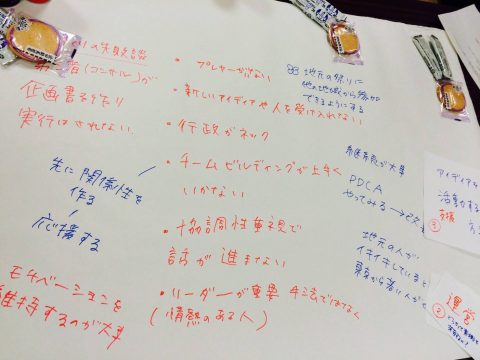 の失敗談
者(コンサル)が
企画書を作り
実行はされない
先に関係性を
作る
応援する
モチベーションを
維持するのが大事
・プレーヤーがいない
・新しいアイディアや人を受け入れない
・行政がネック
・チームビルディングが上手く
いかない
・協調性重視で
話が進まない
・リーダーが重要 手法ではなく
(情熱のある人)
地元の祭りに
他の地域から参加
できるようにする
が大事
PDCA
やってみる→
地元の人が
イキイキしていると
東京から若い人が
アイディアを
活動する
支援
①
運営
②